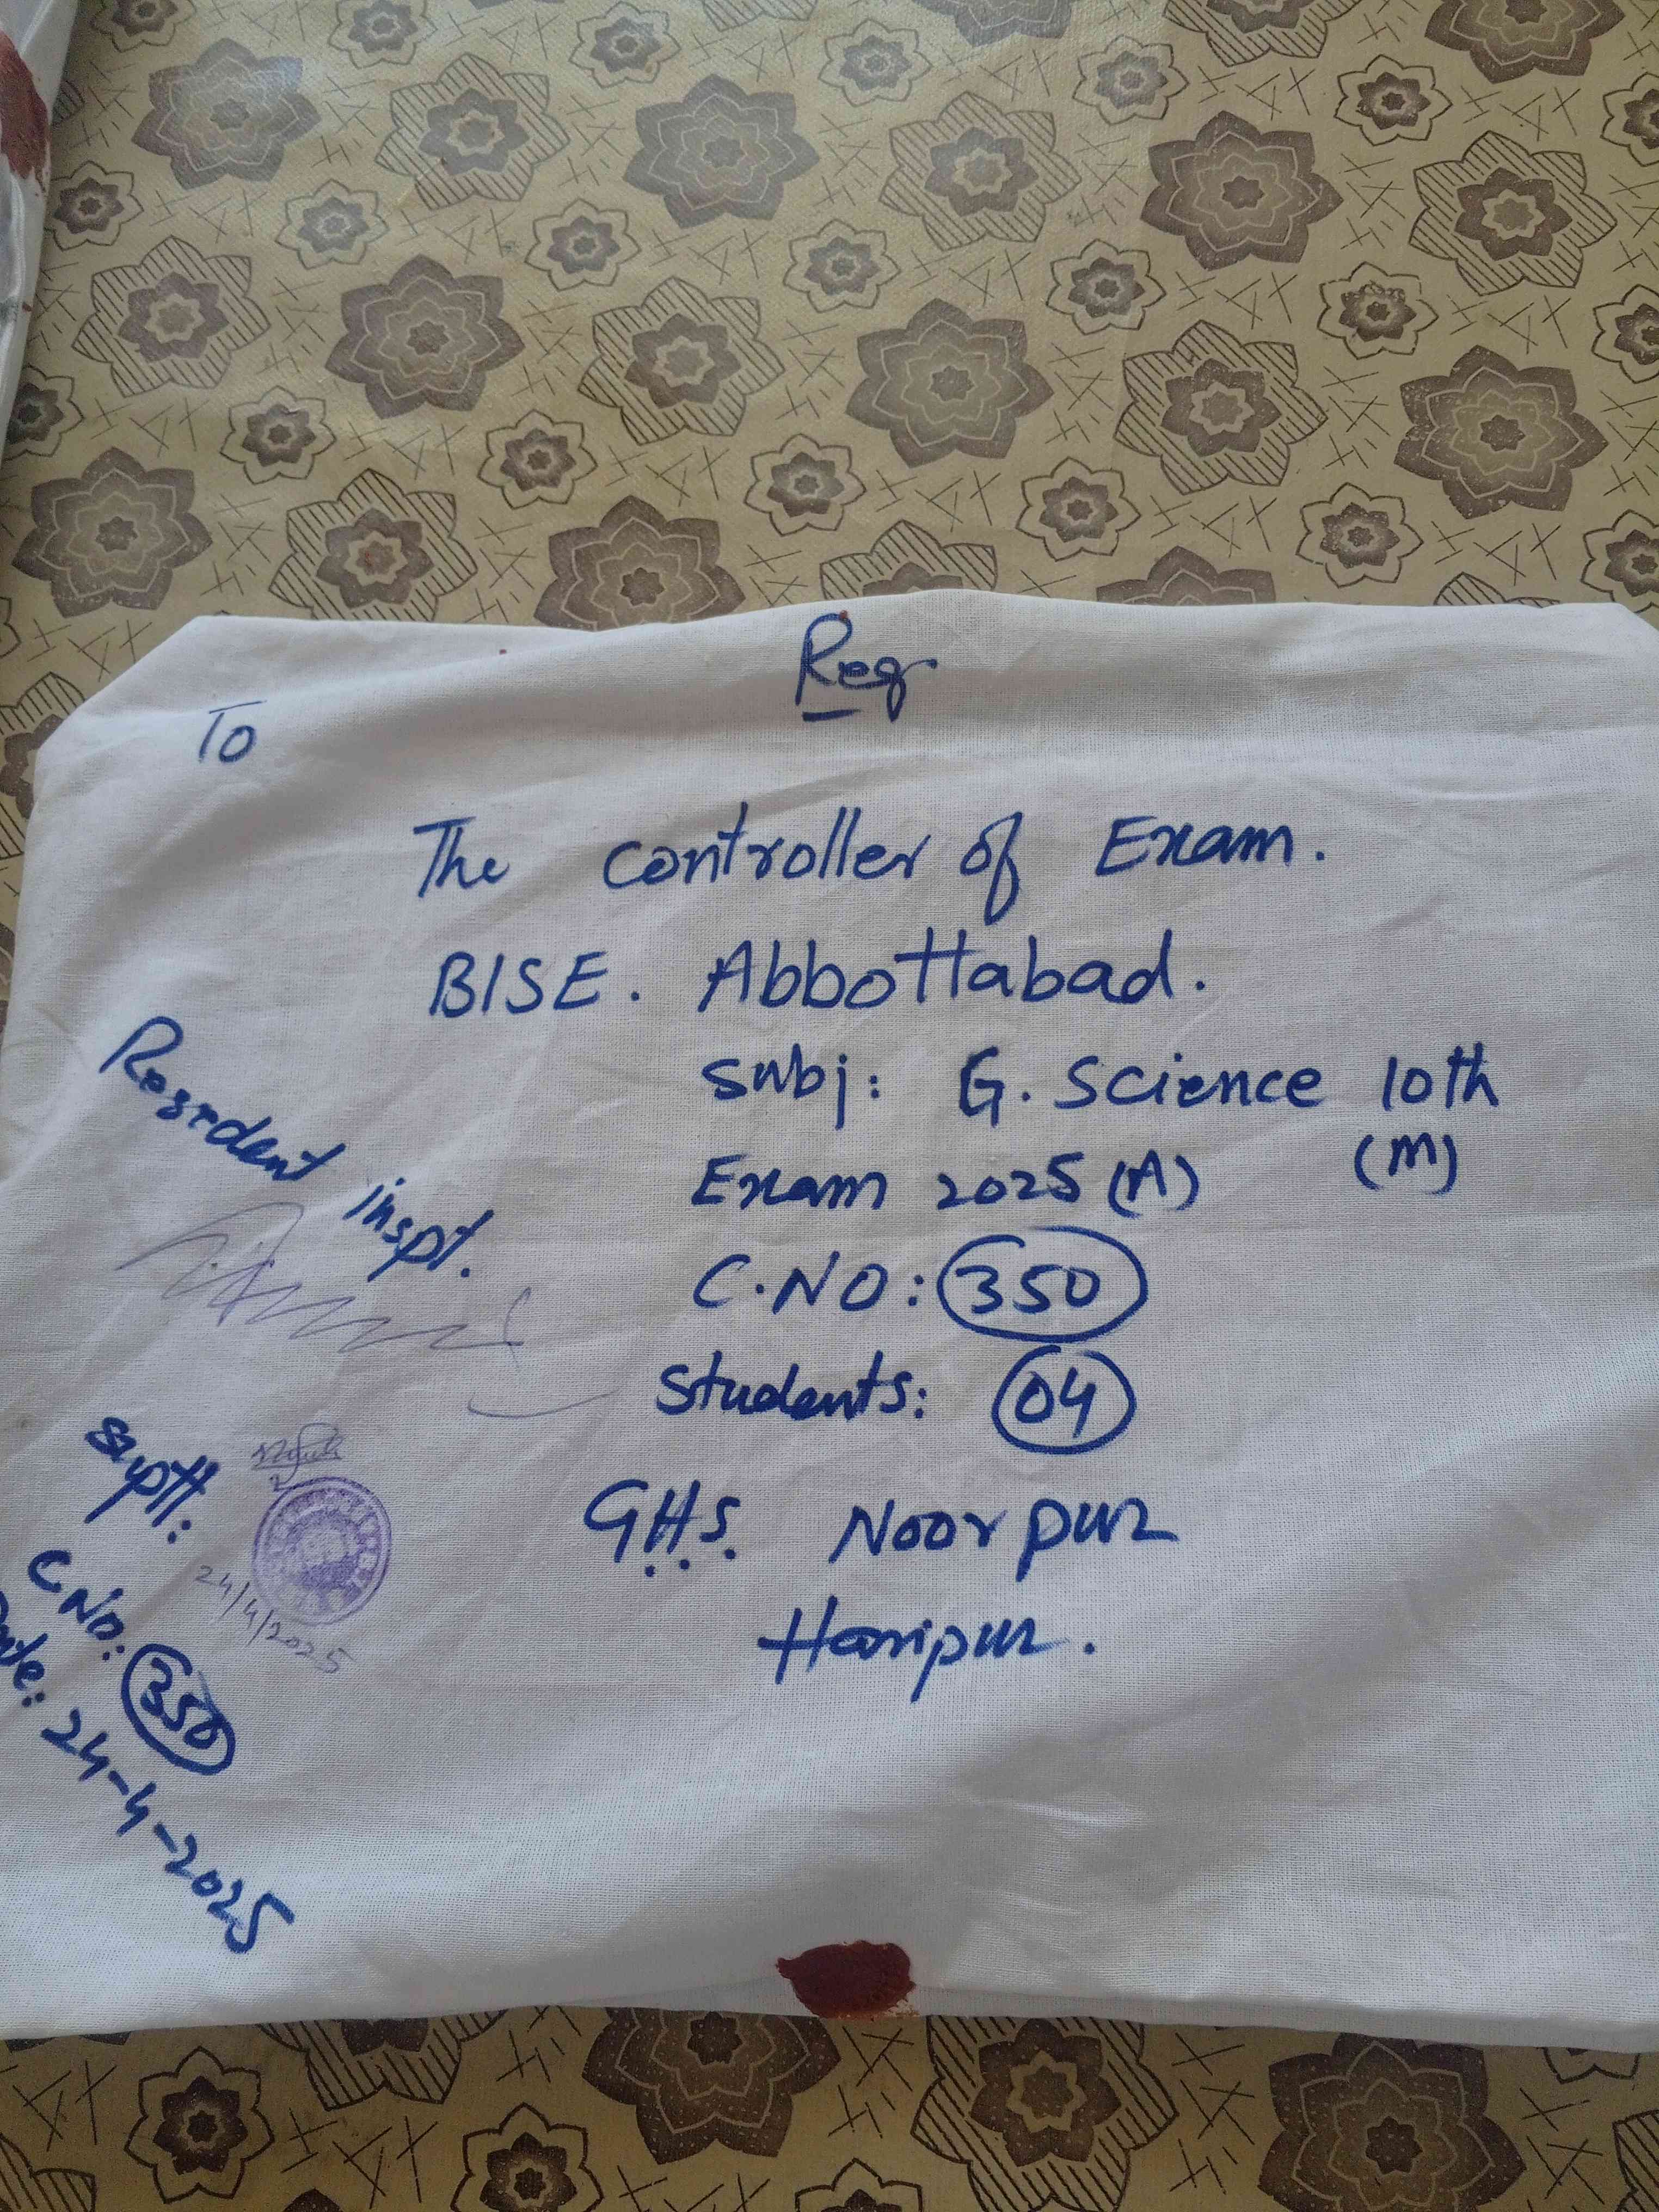 Reg
To
The controller of Exam.
BISE. Abbottabad.
Subj: G. Science 10th
(M)
Exam 2025 (A)
C.NO: 350
Students: 04
G.H.S. Noorpur
Haripur.
Resedent inspt.
suptt:
24/4/2025
C.No: 350
Date: 24-4-2025